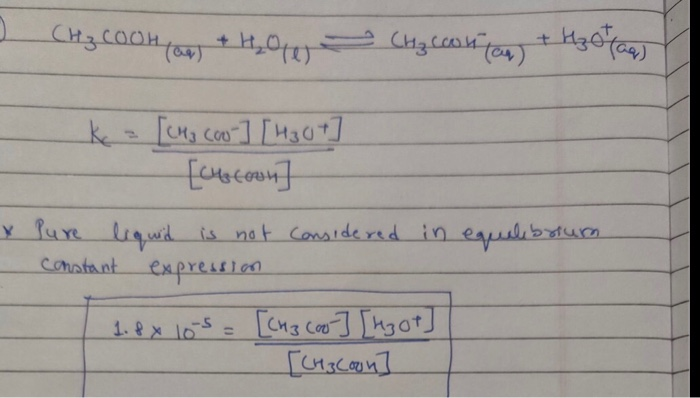 ) CH3COOH(aq) + H2O(l) ⇌ CH3COOH⁻(aq) + H3O⁺(aq)
Kc = [CH3COO⁻] [H3O⁺] / [CH3COOH]
* Pure liquid is not considered in equilibrium
constant expression
1.8 × 10⁻⁵ = [CH3COO⁻] [H3O⁺] / [CH3COOH]